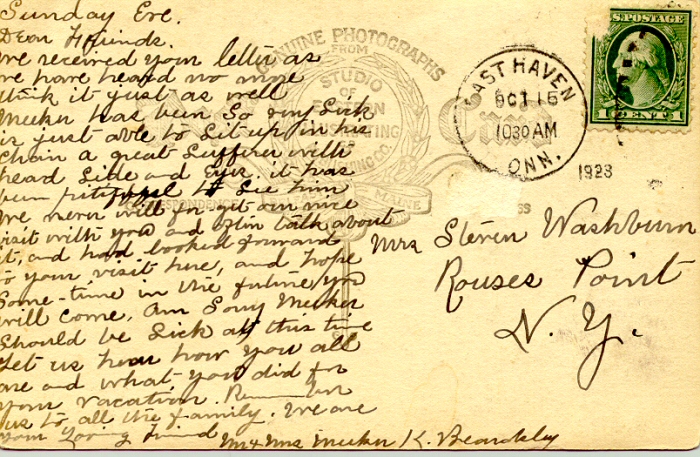 Sunday Eve.
Dear Friends.
We received your letter as
we have heard no more
think it just as well
Meeker has been so very sick
is just able to sit up in his
chair a great sufferer with
head side and eyes. it has
been pitiful to see him
We never will forget our nice
visit with you and often talk about
it, and had looked forward
to your visit here, and hope
some-time in the future you
will come. Am sorry Meeker
should be sick at this time
Let us hear how you all
are and what you did for
your vacation. Remember
us to all the family. We are
your loving friend
Mr & Mrs Meeker K. Beardsley
GENUINE PHOTOGRAPHS
FROM
STUDIO
OF
EASTERN
ILLUSTRATING
CO.
MAINE
CORRESPONDENCE
EAST HAVEN
OCT 16
10 30 AM
CONN.
1923
U.S. POSTAGE
1 CENT 1
Mrs Steven Washburn
Rouses Point
N. Y.